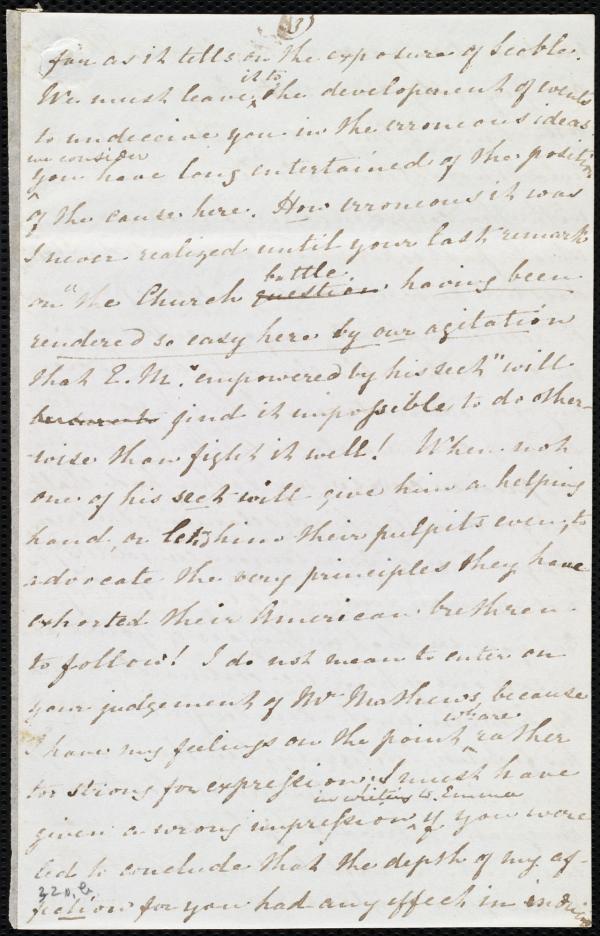 (3)
far as it tells on the exposure of Scoble.
We must leave it to the development of events
to undeceive you in the erroneous ideas
we consider
you have long entertained of the position
of the cause here. How erroneous it was
I never realized until your last remark
on "the Church question battle having been
rendered so easy here by our agitation
that E. M. "empowered by his sect" will
find it impossible to do other-
wise than fight it well! When not
one of his sect will give him a helping
hand, or let him their pulpits even, to
advocate the very principles they have
exhorted their American brethren
to follow! I do not mean to enter on
your judgement of Mr Mathews, because
I have my feelings on the point wh are rather
too strong for expression. I must have
given a wrong impression in writing to Emma if you were
led to conclude that the depth of my af-
fection for you had any effect in
32 n. b.